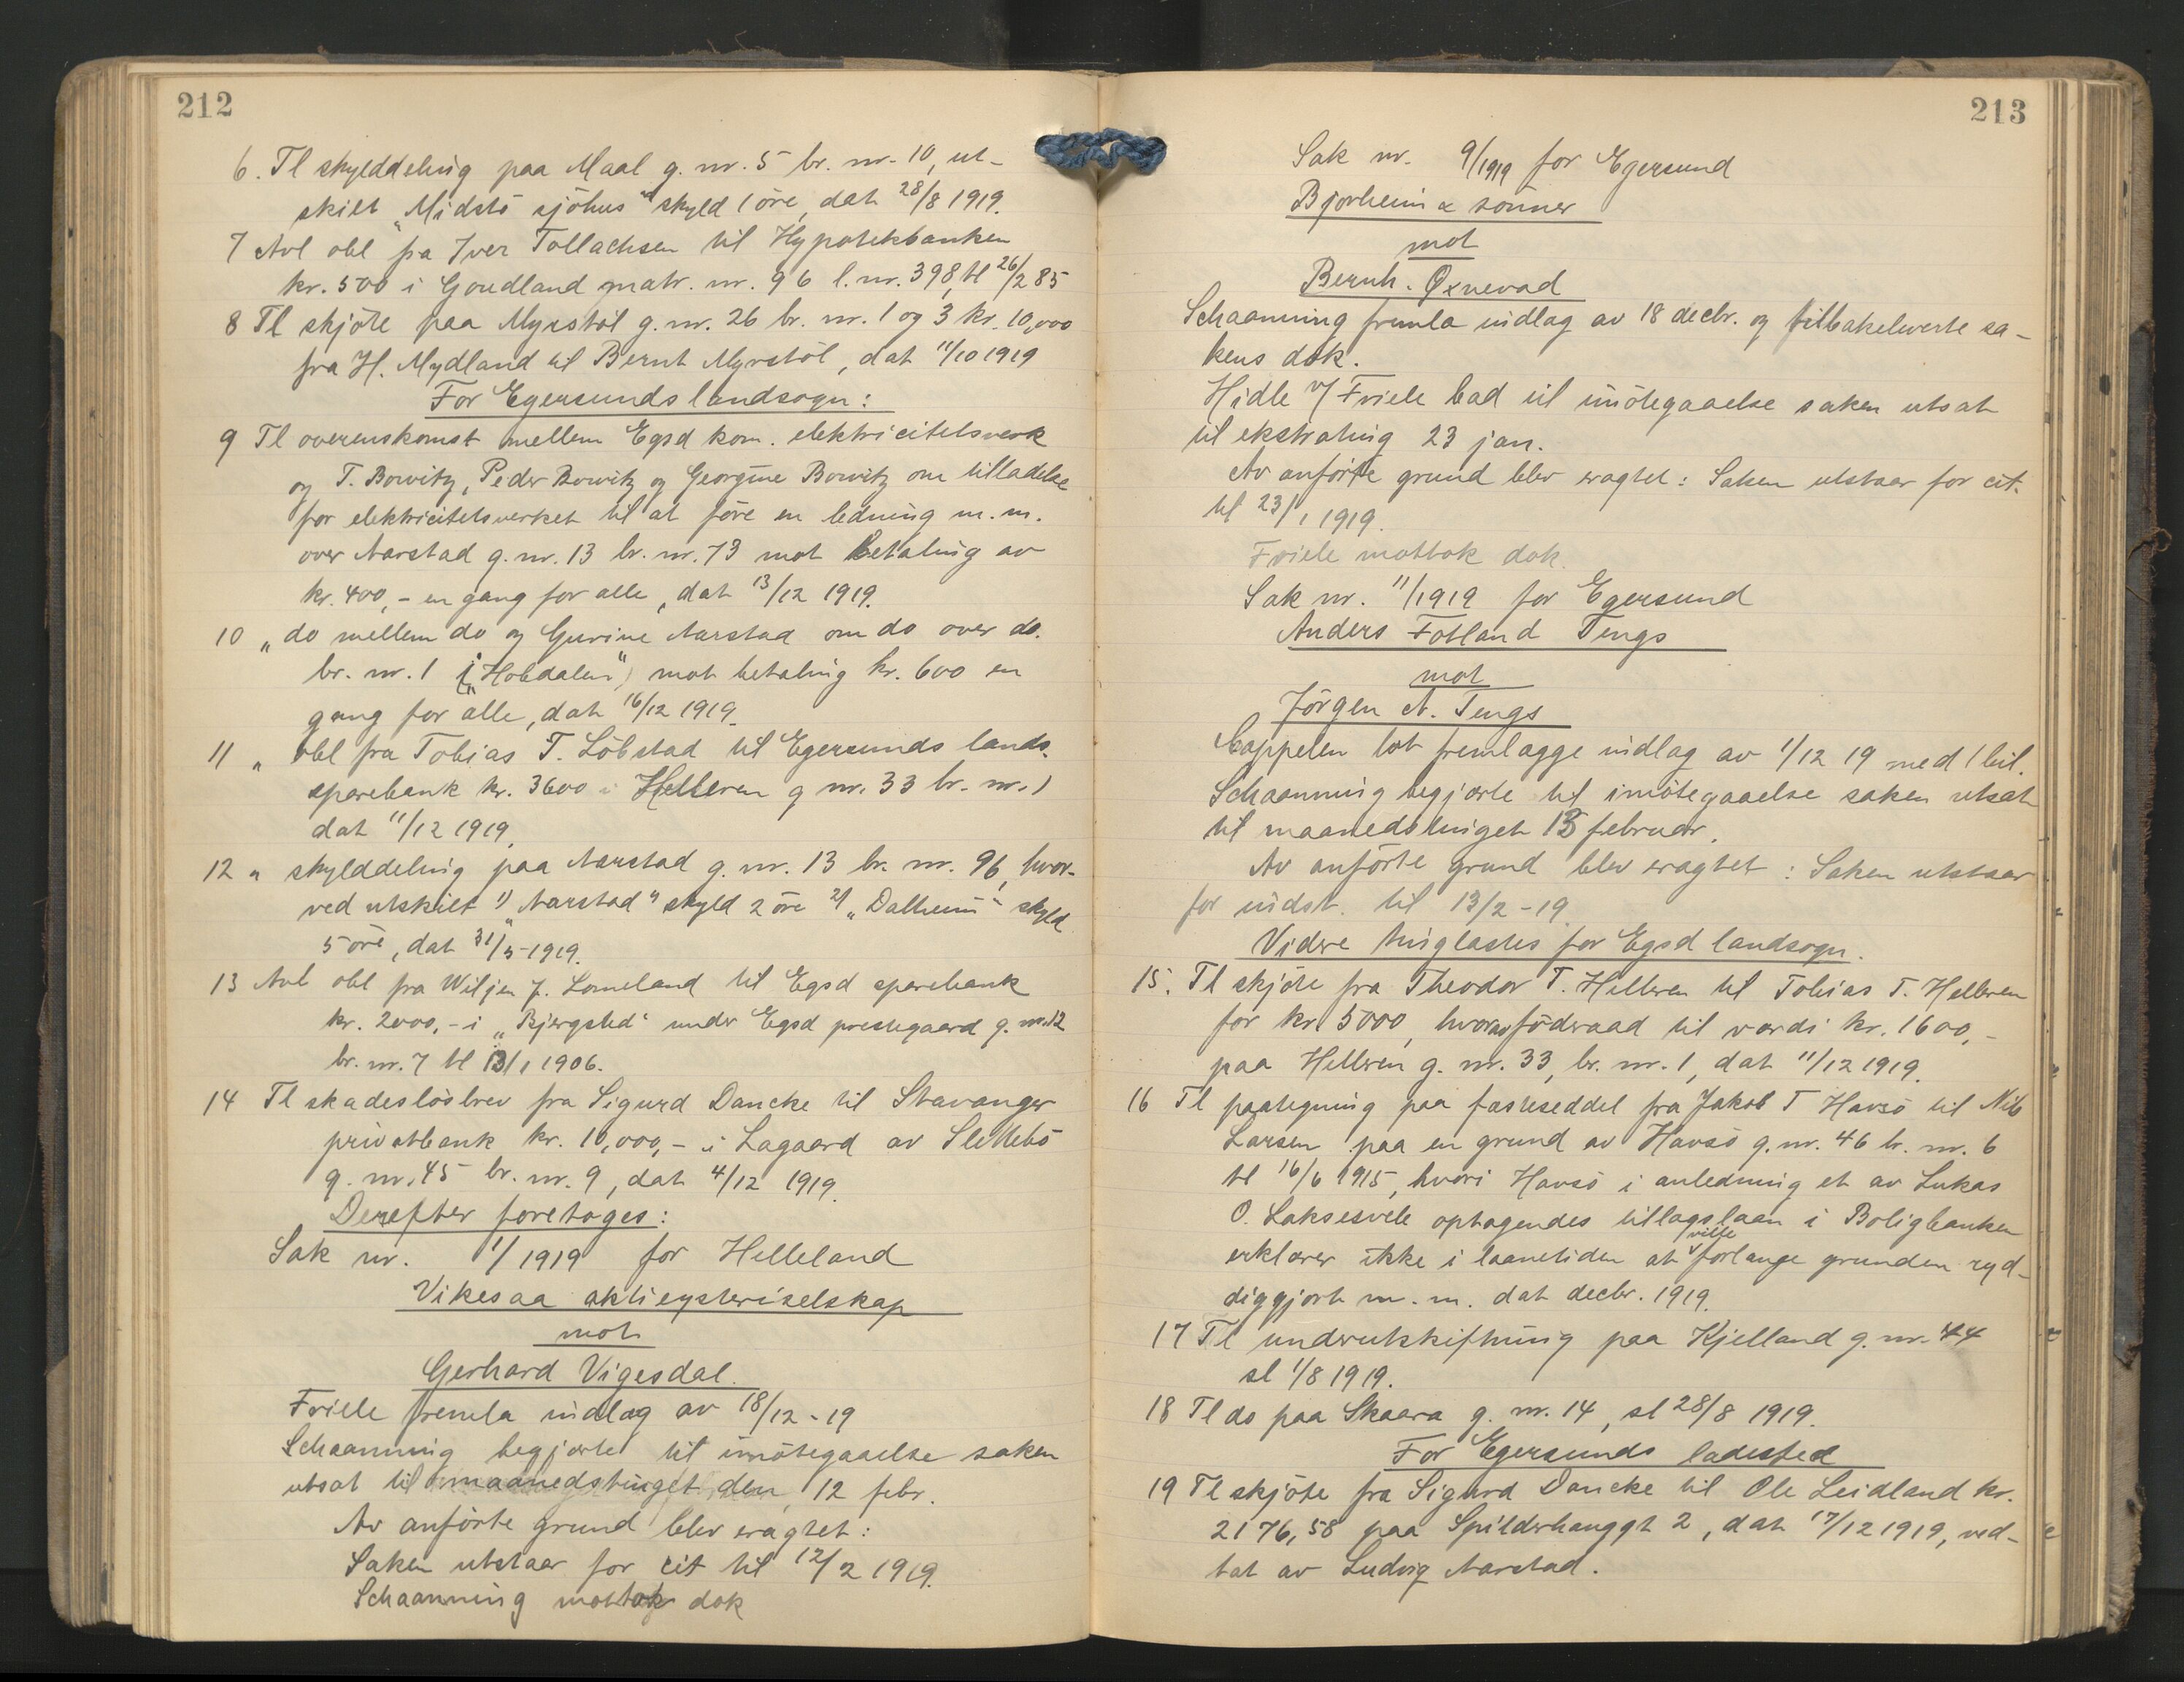 212
6. Tl skylddeling paa Maal g. nr. 5 br. nr. 10, ut-
skilt „Midstö sjöhus" skyld 1 öre, dat 28/8 1919.
7 Avl obl fra Iver Tollachsen til Hypotekbanken
kr. 500 i Goudland matr. nr. 96 l. nr. 398, tl 26/2 85
8 Tl skjöte paa Myrstöl g. nr. 26 br. nr. 1 og 3 kr. 10,000
fra H. Mydland til Bernt Myrstöl, dat 11/10 1919
For Egersunds landsogn:
9 Tl overenskomst mellem Egsd kom. elektricitetsverk
og T. Bowitz, Peder Bowitz og Georgine Bowitz om tilladelse
for elektricitetsverket til at före en ledning m. m.
over Aarstad g. nr. 13 br. nr. 73 mot betaling av
kr. 400,- en gang for alle, dat 13/12 1919.
10 „ do mellem do og Gurine Aarstad om do over do.
br. nr. 1 („Hobdalen") mot betaling kr. 600 en
gang for alle, dat 16/12 1919.
11 „ obl fra Tobias T. Löbstad til Egersunds lands.
sparebank kr. 3600 i Helleren g nr. 33 br. nr. 1
dat 11/12 1919.
12 „ skylddeling paa Aarstad g. nr. 13 br. nr. 96, hvor-
ved utskilt 1) „Aarstad" skyld 2 öre 2) „Dalheim" skyld
5 öre, dat 31/5-1919.
13 Avl obl fra Wiljen J. Lomeland til Egsd sparebank
kr. 2000,- i „Bjergsted" under Egsd prestegaard g. nr. 12
br. nr. 7 tl 13/1 1906.
14 Tl skadeslösbrev fra Sigurd Dancke til Stavanger
privatbank kr. 10,000,- i Lagaard av Slettebö
g. nr. 45 br. nr. 9, dat 4/12 1919.
Derefter foretoges:
Sak nr. 1/1919 for Helleland
Vikesaa aktieysteriselskap
mot
Gerhard Vigesdal.
Friele fremla indlæg av 18/12-19
Schaanning begjærte til imötegaaelse saken
utsat til maanedstinget den 12 febr.
Av anförte grund blev eragtet:
Saken utstaar for cit til 12/2 1919.
Schaanning mottok dok
213
Sak nr. 9/1919 for Egersund
Bjorheim & sönner
mot
Bernh. Øxnevad
Schaanning fremla indlæg av 18 decbr. og tilbakeleverte sa-
kens dok.
Hidle v/ Friele bad til imötegaaelse saken utsat
til ekstrating 23 jan.
Av anförte grund blev eragtet: Saken utstaar for cit.
til 23/1 1919.
Friele mottok dok.
Sak nr. 11/1919 for Egersund
Anders Fotland Tengs
mot
Jörgen A. Tengs
Cappelen lot fremlægge indlæg av 1/12 19 med 1 bil.
Schaanning begjærte til imötegaaelse saken utsat
til maanedstinget 13 februar.
Av anförte grund blev eragtet: Saken utstaar
for indst. til 13/2-19.
Videre tinglæstes for Egsd landsogn.
15. Tl skjöte fra Theodor T. Helleren til Tobias T. Helleren
for kr 5000, hvorav föderaad til værdi kr. 1600,-
paa Helleren g. nr. 33, br. nr. 1, dat 11/12 1919.
16 Tl paategning paa fæsteseddel fra Jakob T Havsö til Nils
Larsen paa en grund av Havsö g. nr. 46 br. nr. 6
tl 16/6 1915, hvori Havsö i anledning et av Lukas
O. Laksesvele optagendes tillægslaan i Boligbanken
erklærer ikke i laanetiden at ville forlange grunden ryd-
diggjort m. m. dat decbr. 1919.
17 Tl underutskiftning paa Kjelland g. nr. 44
sl 1/8 1919.
18 Tl do paa Skaara g. nr. 14, sl 28/8 1919.
For Egersunds ladested
19 Tl skjöte fra Sigurd Dancke til Ole Leidland kr.
2176,58 paa Spilderhauggt 2, dat 17/12 1919, ved-
tat av Ludvig Aarstad.